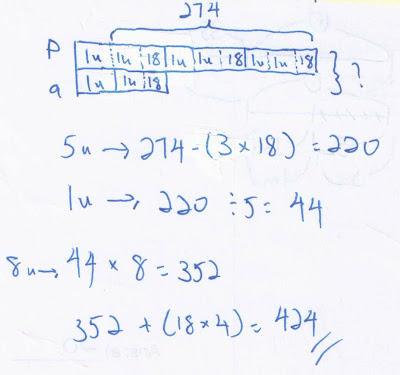 274
P 1u 1u 18 1u 1u 18 1u 1u 18
q 1u 1u 18
} ?
5u → 274 - (3 × 18) = 220
1u → 220 ÷ 5 = 44
8u → 44 × 8 = 352
352 + (18 × 4) = 424 //